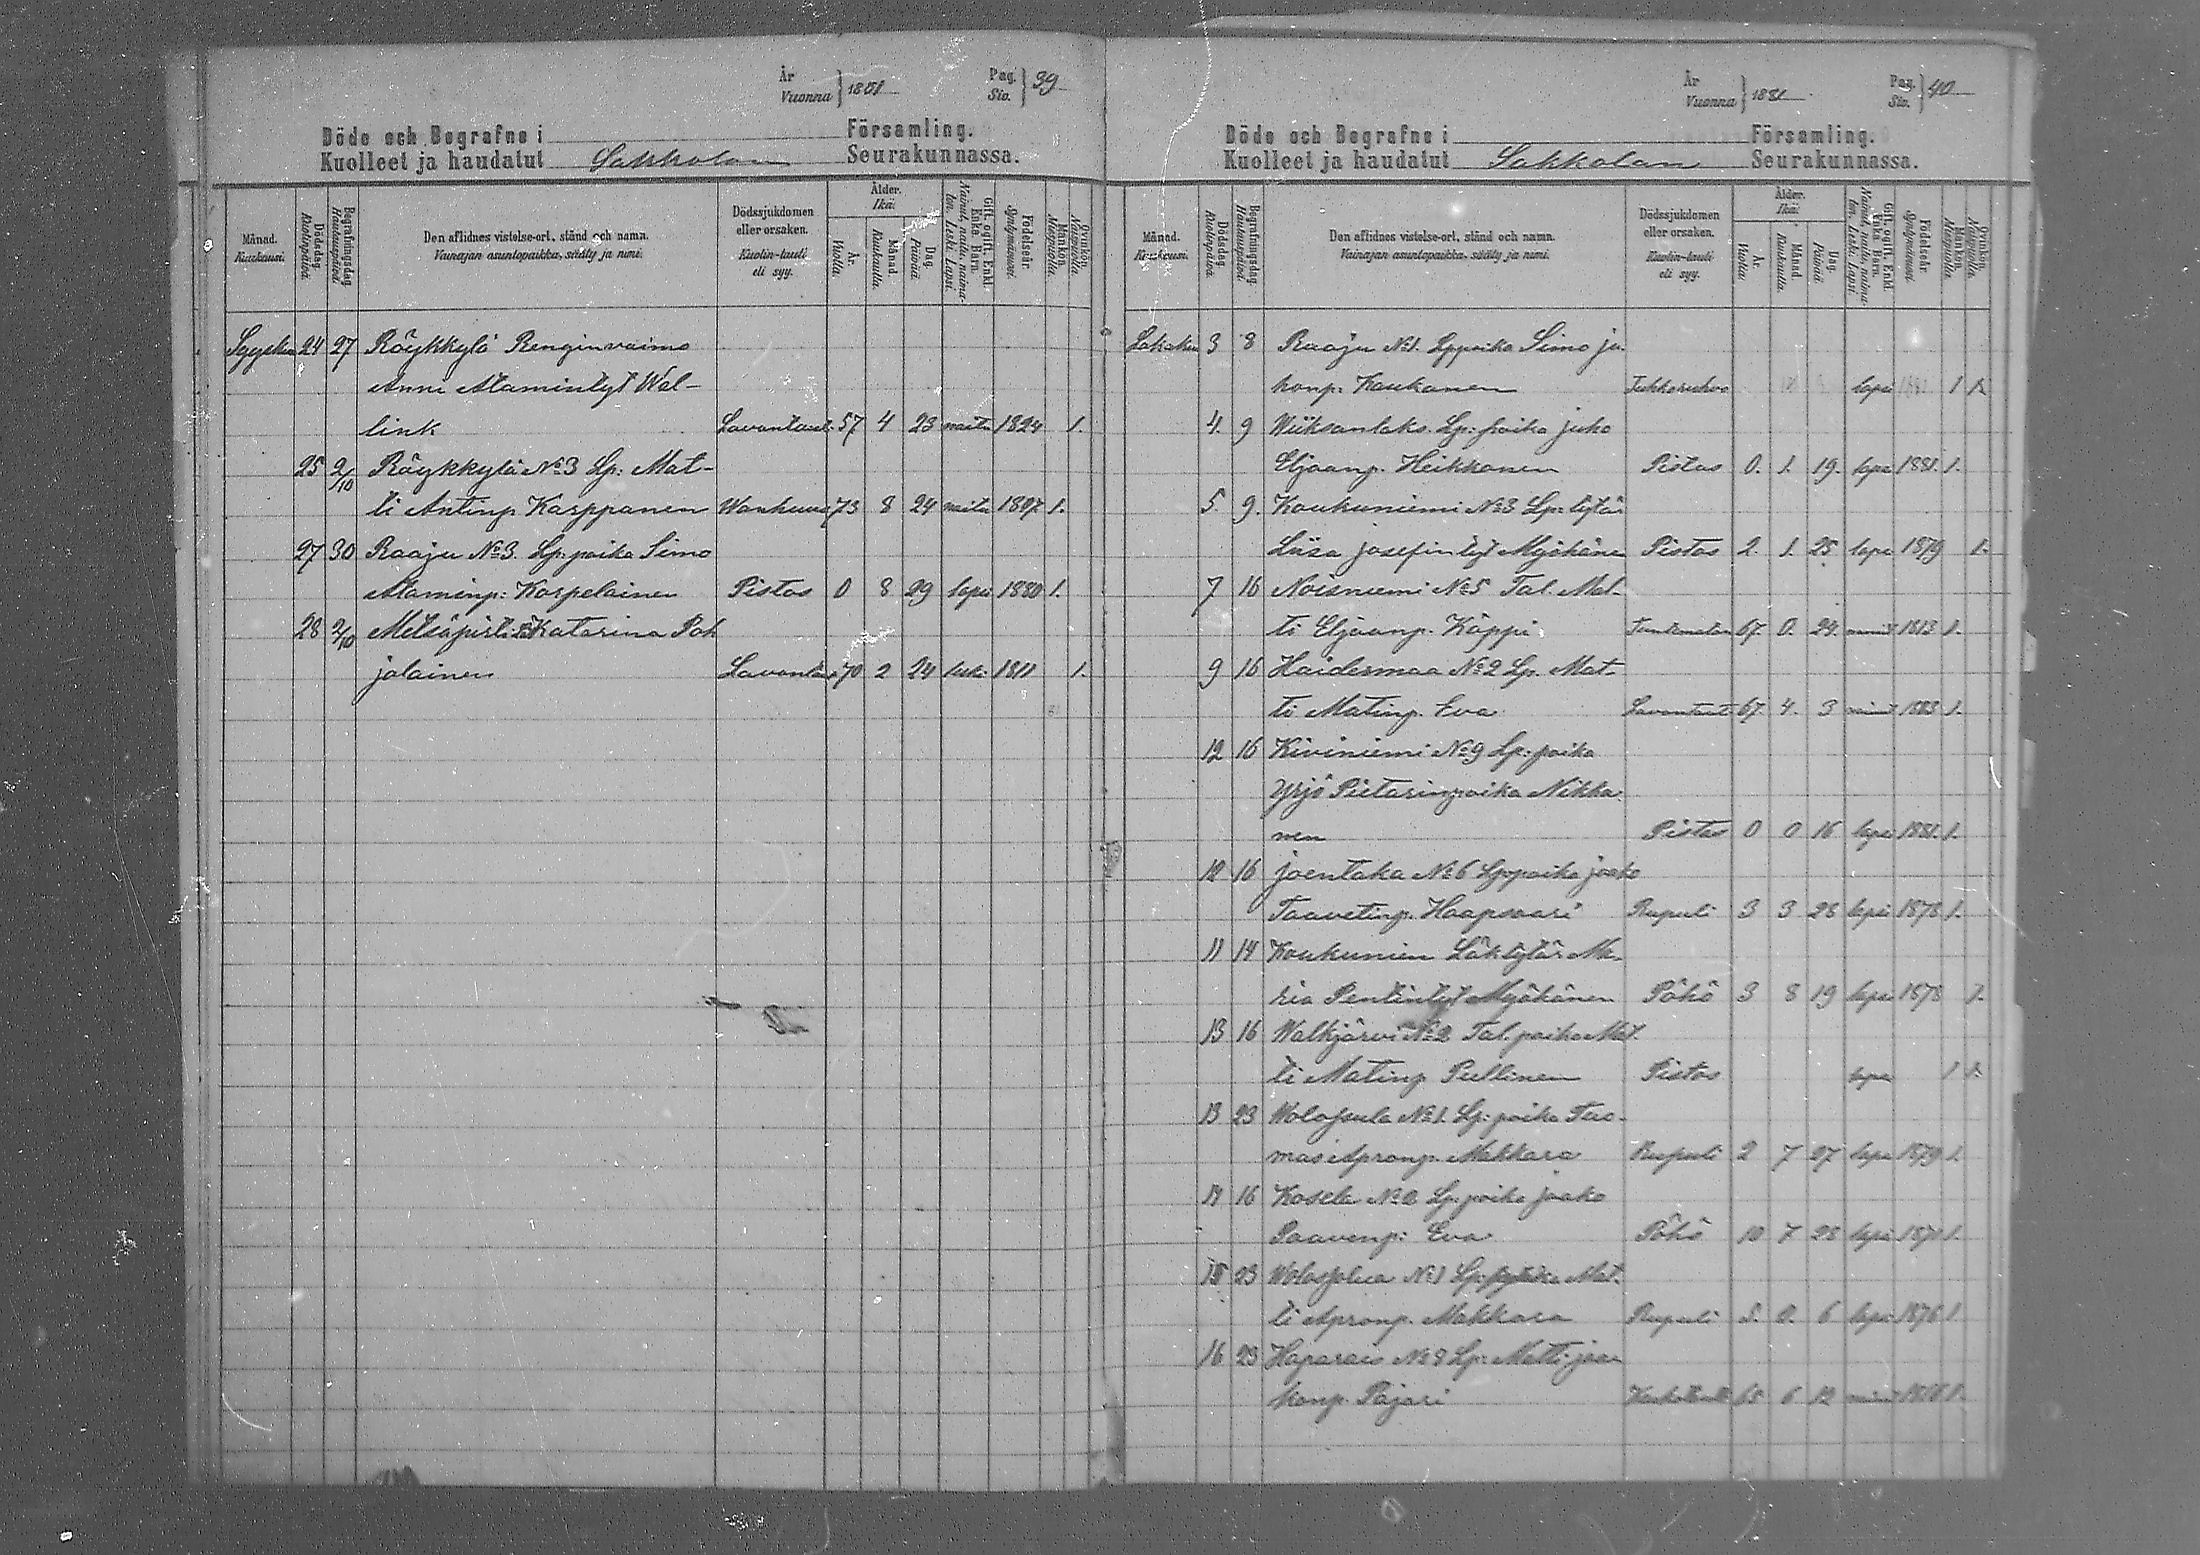 År
Vuonna } 1881
Pag.
Siv. } 39
Döde och Begrafne i Församling.
Kuolleet ja haudatut Sakkolan Seurakunnassa.
Månad. Kuukausi.
Dödsdag. Kuolinpäivä.
Begrafningsdag. Hautauspäivä.
Den aflidnes vistelse-ort, stånd och namn.
Vainajan asuntopaikka, sääty ja nimi.
Dödssjukdomen eller orsaken.
Kuolin-tauti eli syy.
Ålder. Ikä.
År. Vuotta.
Månad. Kuukautta.
Dag. Päivää.
Gift, ogift, Enkl. Enka, Barn.
Nainut, naitu, naimaton, Leski, Lapsi.
Födelseår. Syntymävuosi.
Mankön. Miespuolia.
Qvinkön. Naispuolia.
Syysku 24 27 Röykkylä Renginvaimo
Anni Atamintyt Wal-
link Lavantaut 57 4 23 naitu 1824 1.
25 2/10 Röykkylä No 3 Lp: Mat-
ti Antinp. Karppanen Wanhuus 73 8 24 naitu 1807 1.
27 30 Raaju No 3. Lp: poika Simo
Ataminp: Karpelainen Pistos 0 8 29 lapsi 1880 1.
28 2/10 Metsäpirtti Katarina Poh
jalainen Lavantau 70 2 24 leski 1811 1.
År
Vuonna } 1881
Pag.
Siv. } 40
Döde och Begrafne i Församling.
Kuolleet ja haudatut Sakkolan Seurakunnassa.
Månad. Kuukausi.
Dödsdag. Kuolinpäivä.
Begrafningsdag. Hautauspäivä.
Den aflidnes vistelse-ort, stånd och namn.
Vainajan asuntopaikka, sääty ja nimi.
Dödssjukdomen eller orsaken.
Kuolin-tauti eli syy.
Ålder. Ikä.
År. Vuotta.
Månad. Kuukautta.
Dag. Päivää.
Gift, ogift, Enkl. Enka, Barn.
Nainut, naitu, naimaton, Leski, Lapsi.
Födelseår. Syntymävuosi.
Mankön. Miespuolia.
Qvinkön. Naispuolia.
Lokaku 3 8 Raaju No 1. Lp poika Simo ju
honp. Kaukanen lapsi 1881 1
4. 9 Wiiksanlaks. Lp: poika juho
Eljaanp. Heikkonen Pistos 0. 1. 19. lapsi 1881. 1.
5. 9. Koukuniemi No 3 Lp: tytär
Liisa josefintyt Myöhäne Pistos 2. 1. 25. lapsi 1879 1.
7 16 Noisniemi No 5 Tal. Mat-
ti Eljaanp. Käppi Tuntematon 67. 0. 24. 1813 1.
9 16 Haidermaa No 2 Lp. Mat-
ti Matinp. Eva Lavantaut 67. 4. 3 1.
12 16 Kiviniemi No 9 Lp: poika
Yrjö Pietarinpoika Nikka
nen Pistos 0 0 16 lapsi 1881. 1.
12 16 joentaka No 6 Lp: poika jaako
Taavetinp. Haapsaari Rupuli 3 3 28 lapsi 1878 1.
11 14 Koukunien Läktytär Ma-
ria Pentintyt Myöhänen Pöhö 3 8 19 lapsi 1878 1.
13 16 Walkjärvi No 2 Tal. poika Mat.
ti Matinp Pullinen Pistos lapsi 1
13 23 Wolossula No 1. Lp: poika Tuo-
mas Apronp. Makkara Rupuli 2 7 27 lapsi 1879 1.
14 16 Kosela No 2 Lp. poika jaako
Paavonp: Eva Pöhö 10 7 28 lapsi 1871 1.
15 23 No 1 Lp: poika Mat-
ti Apronp. Makkara Rupuli 5. 0. 6 lapsi 1876 1
16 23 Haparais No 8 Lp: Matti jaa
konp. Pajari 65 6 12 1.